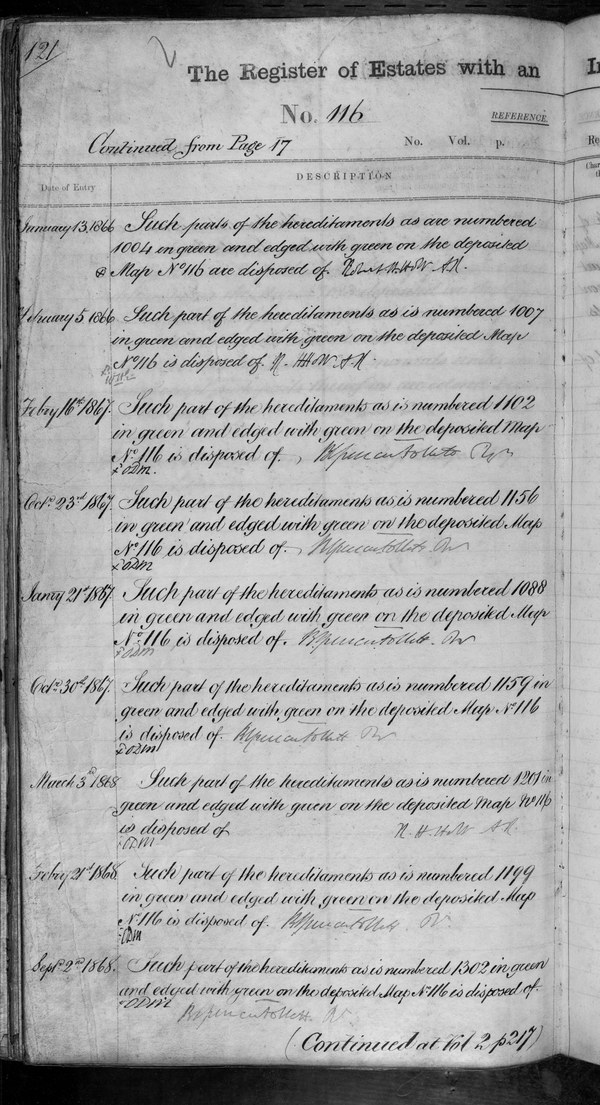 121
The Register of Estates with an
No. 116
REFERENCE.
Continued from Page 17
No. Vol. p.
Date of Entry
DESCRIPTION
January 13. 1866 Such parts of the hereditaments as are numbered
1004 in green and edged with green on the deposited
Map No 116 are disposed of.
February 5 1866 Such part of the hereditaments as is numbered 1007
in green and edged with green on the deposited Map
No 116 is disposed of.
Febry 16th 1867. Such part of the hereditaments as is numbered 1102
in green and edged with green on the deposited Map
No 116 is disposed of.
ODM.
Octr 23rd 1867. Such part of the hereditaments as is numbered 1156
in green and edged with green on the deposited Map
No 116 is disposed of.
ODM
Janry 21st 1867 Such part of the hereditaments as is numbered 1088
in green and edged with green on the deposited Map
No 116 is disposed of.
ODM
Octr 30th 1867. Such part of the hereditaments as is numbered 1159 in
green and edged with green on the deposited Map No 116
is disposed of.
ODM
March 3rd 1868 Such part of the hereditaments as is numbered 1201 in
green and edged with green on the deposited Map No 116
is disposed of
ODM
Febry 21st 1868 Such part of the hereditaments as is numbered 1199
in green and edged with green on the deposited Map
No 116 is disposed of.
ODM
Septr 2nd 1868. Such part of the hereditaments as is numbered 1302 in green
and edged with green on the deposited Map No 116 is disposed of.
ODM
(Continued at Vol 2 p 217)